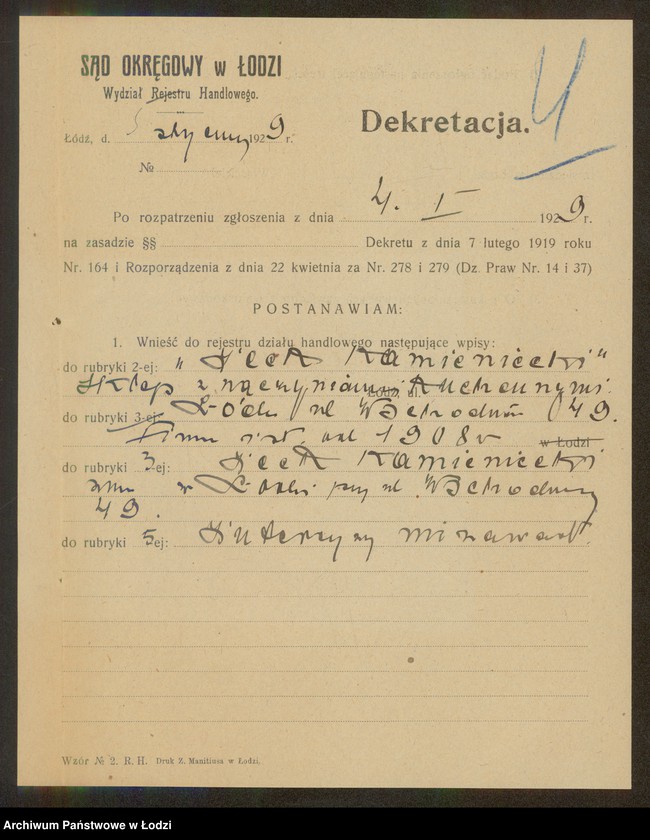 SĄD OKRĘGOWY w ŁODZI
Wydział Rejestru Handlowego.
Łódź, d. 5 stycznia 1929 r.
№
Dekretacja.
Po rozpatrzeniu zgłoszenia z dnia 4. I 1929 r.
na zasadzie §§ Dekretu z dnia 7 lutego 1919 roku
Nr. 164 i Rozporządzenia z dnia 22 kwietnia za Nr. 278 i 279 (Dz. Praw Nr. 14 i 37)
POSTANAWIAM:
1. Wnieść do rejestru działu handlowego następujące wpisy:
do rubryki 2-ej: „Icek Kamieniecki"
Sklep z naczyniami kuchennymi
Łódź, ul.
do rubryki 3-ej: Łódź ul Wschodnia 49.
Firma istn. od 1908 r
w Łodzi
do rubryki 3-ej: Icek Kamieniecki
zam w Łodzi przy ul. Wschodniej
49.
do rubryki 5-ej: Intercyzy nie zawarł.
Wzór № 2. R. H. Druk Z. Manitiusa w Łodzi.
Archiwum Państwowe w Łodzi